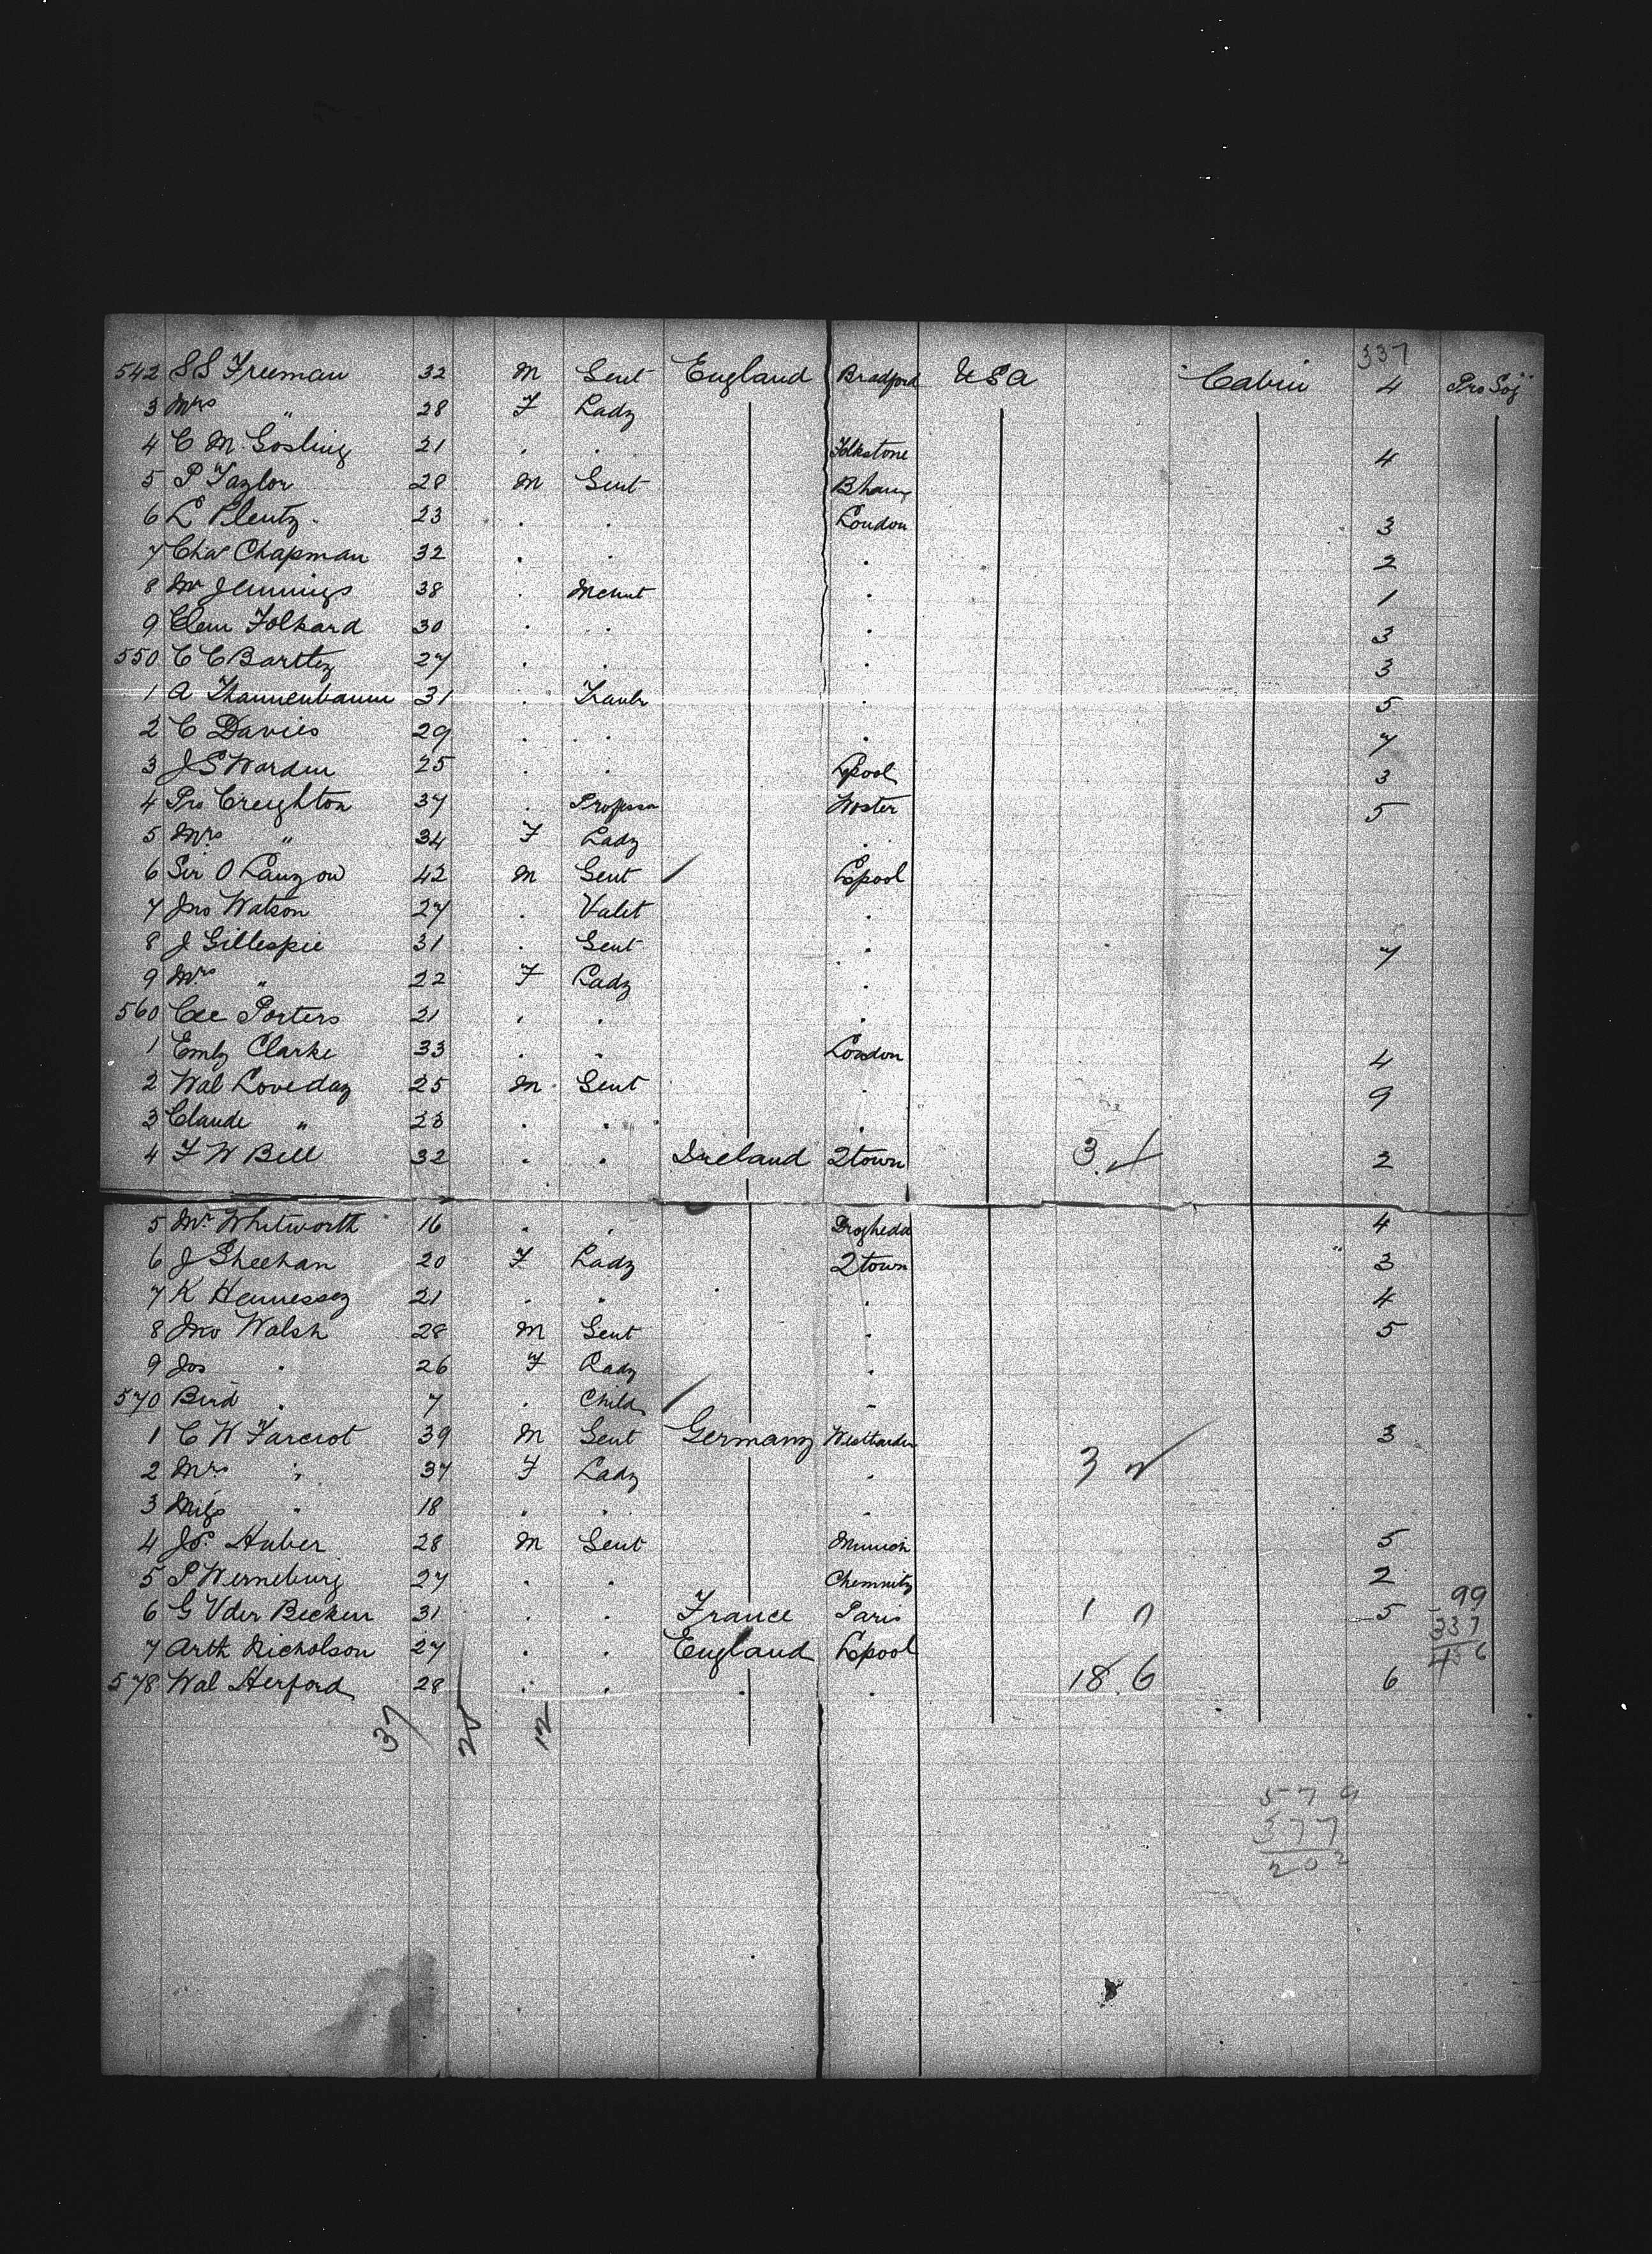 337
542 S S Freeman 32 M Gent England Bradford USA Cabin 4 Pro Soj
3 Mrs " 28 F Lady
4 C M Gosling 21 . . Folkstone 4
5 P Taylor 28 M Gent Bham
6 L Plentz 23 . . London 3
7 Chas Chapman 32 . . . 2
8 Mr Jennings 38 . Mchnt . 1
9 Clem Folkard 30 . . . 3
550 C C Bartley 27 . . . 3
1 A Thannenbaum 31 . . 5
2 C Davies 29 . . . 7
3 J S Warden 25 . . Lpool 3
4 Pro Creighton 37 . Professr Woster 5
5 Mrs " 34 F Lady .
6 Sir O 42 M Gent Lpool
7 Jno Watson 27 . Valet .
8 J Gillespie 31 . Gent . 7
9 Mrs " 22 F Lady .
560 Porters 21 . . .
1 Emly Clarke 33 . . London 4
2 Wal Loveday 25 M Gent . 9
3 Claude " 23 . . .
4 F W Bell 32 . . Ireland Qtown 3 2
5 Mr Whitworth 16 . . Drogheda 4
6 J Sheehan 20 F Lady Qtown 3
7 K Hennessey 21 . . . 4
8 Jno Walsh 28 M Gent . 5
9 Jos " 26 F Lady .
570 Bird " 7 . Child .
1 C W 39 M Gent Germany 3
2 Mrs " 37 F Lady . 3
3 Miss " 18 . . .
4 Js. Huber 28 M Gent Munich 5
5 P Werneburg 27 . . Chemnitz 2
6 G Vder Becken 31 . . France Paris 1 5 99
7 Arth Nicholson 27 . . England Lpool 337
578 Wal Herford 28 . . . . 18 6 6 436
37 25 12
579
377
202